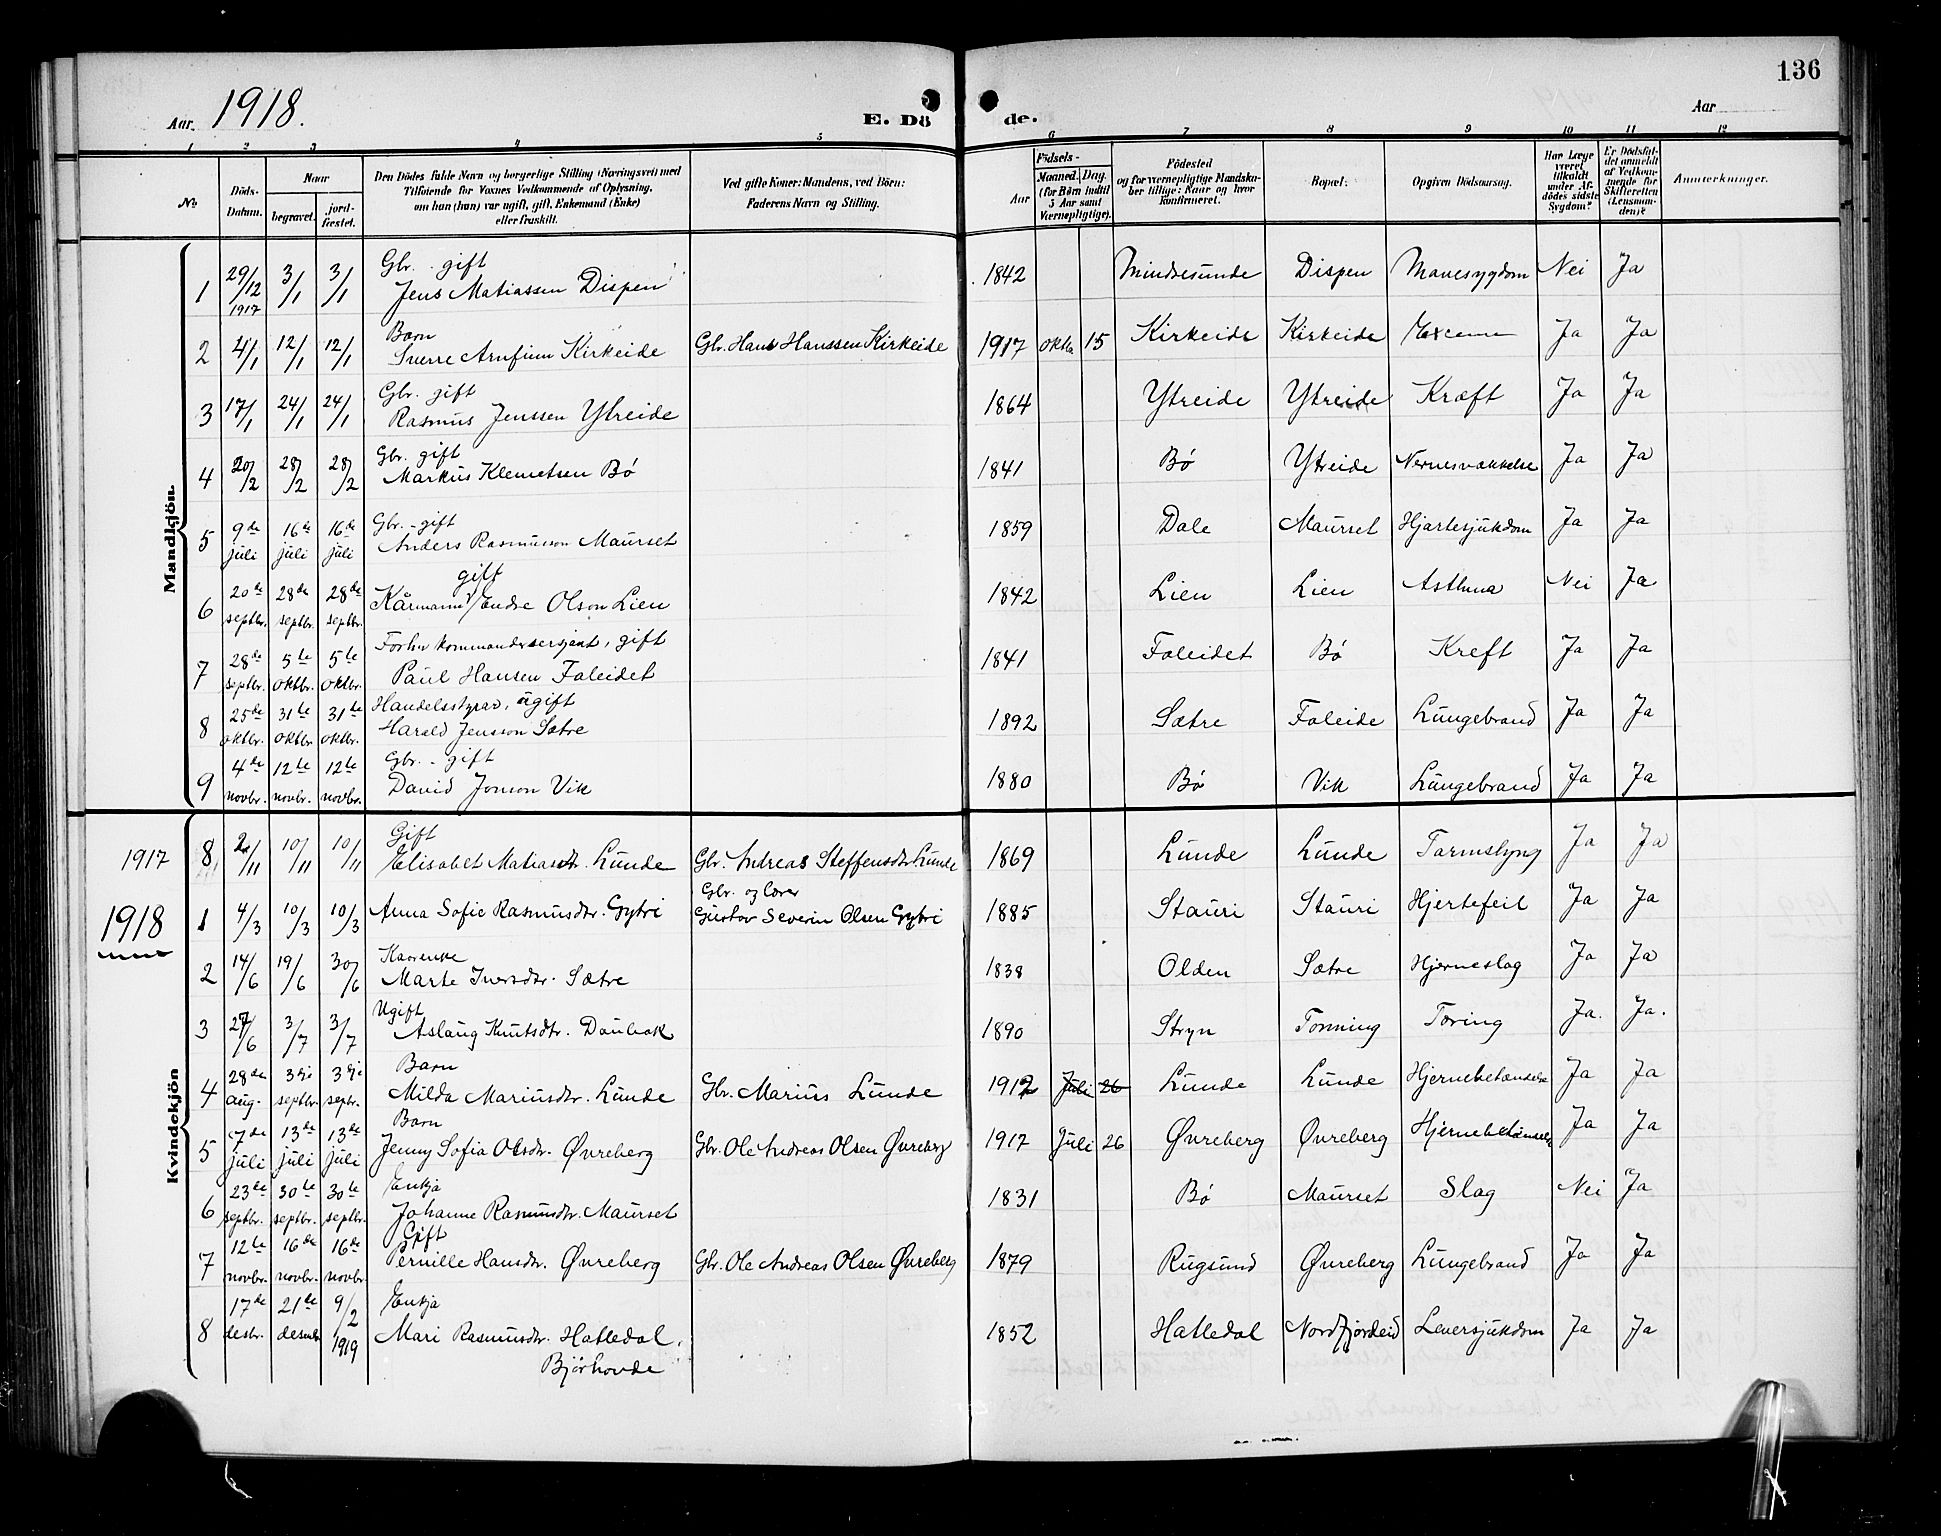 136
Aar 1918.
E. Dö de.
Aar
1 2 3 4 5 6 7 8 9 10 11 12
No
Döds-Datum.
Naar
begravet.
jord-fæstet.
Den Dödes fulde Navn og borgerlige Stilling (Næringsvei) med
Tilföiende for Voxnes Vedkommende af Oplysning,
om han (hun) var ugift, gift, Enkemand (Enke)
eller fraskilt.
Ved gifte Koner: Mandens, ved Börn:
Faderens Navn og Stilling.
Födsels-
Aar
Maaned. Dag.
(for Börn indtil
5 Aar samt
Værnepligtige).
Födested
og for værnepligtige Mandska-
ber tillige: Naar og hvor
konfirmeret.
Bopæl.
Opgiven Dödsaarsag.
Har Læge
været
tilkaldt
under Af-
dödes sidste
Sygdom?
Er Dödsfal-
det anmeldt
af Vedkom-
mende for
Skifteretten
(Lensman-
den)?
Anmærkninger.
Mandkjön.
Gbr. - gift
1 29/12 1917 3/1 3/1 Jens Matiassen Dispen 1842 Mindresunde Dispen Mavesygdom Nei Ja
Barn
2 4/1 12/1 12/1 Sverre Arnfinn Kirkeide Gbr. Hans Hanssen Kirkeide 1917 oktbr 15 Kirkeide Kirkeide Exceme Ja Ja
Gbr. gift
3 17/1 24/1 24/1 Rasmus Jenssen Ytreide 1864 Ytreide Ytreide Kræft Ja Ja
Gbr. gift
4 20/2 28/2 28/2 Markus Klemetsen Bö 1841 Bö Ytreide Nernesvækkelse Ja Ja
Gbr. - gift
5 9de juli 16de juli 16de juli Anders Rasmusson Maurset 1859 Dale Maurset Hjartesjukdom Ja Ja
gift
6 20de septbr. 28de septbr. 28de septbr. Kårmann, Endre Olson Lien 1842 Lien Lien Asthma Nei Ja
Forhv kommandersersjant, gift
7 28de septbr. 5te oktbr. 5te oktbr. Paul Hansen Faleidet 1841 Faleidet Bö Kreft Ja Ja
Handelsstyrar, ugift
8 25de oktbr. 31te oktbr. 31te oktbr. Harald Jensson Sætre 1892 Sætre Faleide Lungebrand Ja Ja
Gbr. - gift
9 4de novbr. 12te novbr. 12te novbr. David Jonson Vik 1880 Bö Vik Lungebrand Ja Ja
Kvindekjön
Gift
1917 8 2/11 10/11 10/11 Elisabet Matiasdtr. Lunde Gbr. Andreas Steffensdtr. Lunde 1869 Lunde Lunde Tarmslyng Ja Ja
Gbr. og lærer
1918 1 4/3 10/3 10/3 Anna Sofie Rasmusdtr. Gytri Gustav Severin Olsen Gytri 1885 Stauri Stauri Hjertefeil Ja Ja
Kaarenke
2 14/6 19/6 30/6 Marte Iversdtr. Sætre 1838 Olden Sætre Hjerneslag Ja Ja
Ugift
3 27/6 3/7 3/7 Aslaug Knutsdtr. Daubak 1890 Stryn Tonning Tæring Ja. Ja.
Barn
4 28de aug. 3dje septbr. 3dje sepbr. Milda Mariusdtr. Lunde Gbr. Marius Lunde 1912 Juli 26 Lunde Lunde Hjernebetændelse Ja Ja
Barn
5 7de juli 13de juli 13de juli Jenny Sofia Olsdtr. Øvreberg Gbr. Ole Andreas Olsen Øvreberg 1917 Juli 26 Øvreberg Øvreberg Hjernebetændelse Ja Ja
Enkja
6 23de septbr. 30te septbr. 30te septbr. Johanne Rasmusdtr. Maurset 1831 Bö Maurset Slag Nei Ja
Gift
7 12te novbr. 16de novbr. 16de novbr. Pernille Hansdtr. Øvreberg Gbr. Ole Andreas Olsen Øvreberg 1879 Rugsund Øvreberg Lungebrand Ja Ja
Enkja
8 17de desbr. 21de desember 9/2 1919 Mari Rasmusdtr. Hatledal, 1852 Hatledal Nordfjordeid Leversjukdom Ja Ja
Bjørhovde